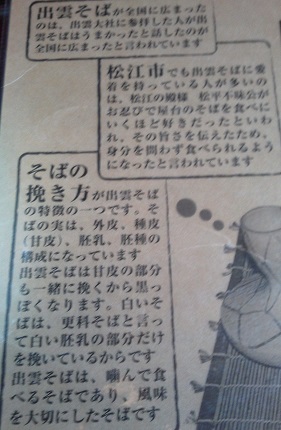 出雲そばが全国に広まった
のは、出雲大社に参拝した人が出
雲そばはうまかったと話したのが
全国に広まったと言われています
松江市でも出雲そばに愛
着を持っている人が多いの
は、松江の殿様　松平不昧公が
お忍びで屋台のそばを食べに
いくほど好きだったといわ
れ、その旨さを伝えたため、
身分を問わず食べられるよう
になったと言われています
そばの
挽き方が出雲そば
の特徴の一つです。そ
ばの実は、外皮、種皮
(甘皮)、胚乳、胚種の
構成になっています
出雲そばは甘皮の部分
も一緒に挽くから黒っ
ぽくなります。白いそ
ばは、更科そばと言っ
て白い胚乳の部分だけ
を挽いているからです
出雲そばは、噛んで食
べるそばであり、風味
を大切にしたそばです